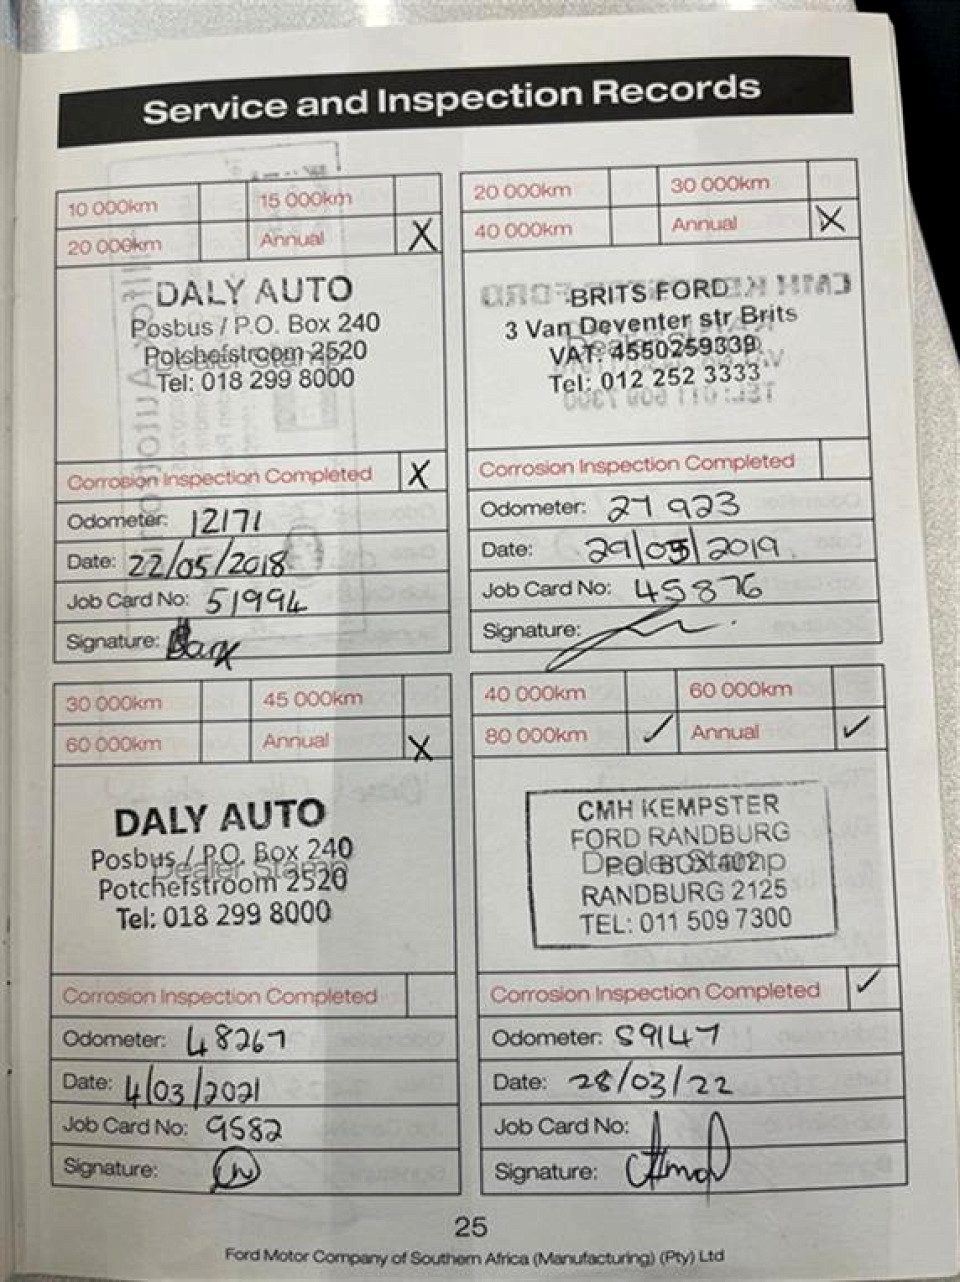 Service and Inspection Records
10 000km 15 000km
20 000km Annual X
DALY AUTO
Posbus / P.O. Box 240
Potchefstroom 2520
Tel: 018 299 8000
Dealer Stamp
Corrosion Inspection Completed X
Odometer: 12171
Date: 22/05/2018
Job Card No: 51994
Signature:
20 000km 30 000km
40 000km Annual X
BRITS FORD
3 Van Deventer str Brits
VAT: 4550259339
Tel: 012 252 3333
Corrosion Inspection Completed
Odometer: 27 923
Date: 29/05/2019
Job Card No: 45876
Signature:
30 000km 45 000km
60 000km Annual X
DALY AUTO
Posbus / P.O. Box 240
Dealer Stamp
Potchefstroom 2520
Tel: 018 299 8000
Corrosion Inspection Completed
Odometer: 48267
Date: 4/03/2021
Job Card No: 9582
Signature:
40 000km 60 000km
80 000km ✓ Annual ✓
CMH KEMPSTER
FORD RANDBURG
Dealer Stamp
P.O. BOX 402
RANDBURG 2125
TEL: 011 509 7300
Corrosion Inspection Completed ✓
Odometer: 59147
Date: 28/03/22
Job Card No:
Signature:
25
Ford Motor Company of Southern Africa (Manufacturing) (Pty) Ltd